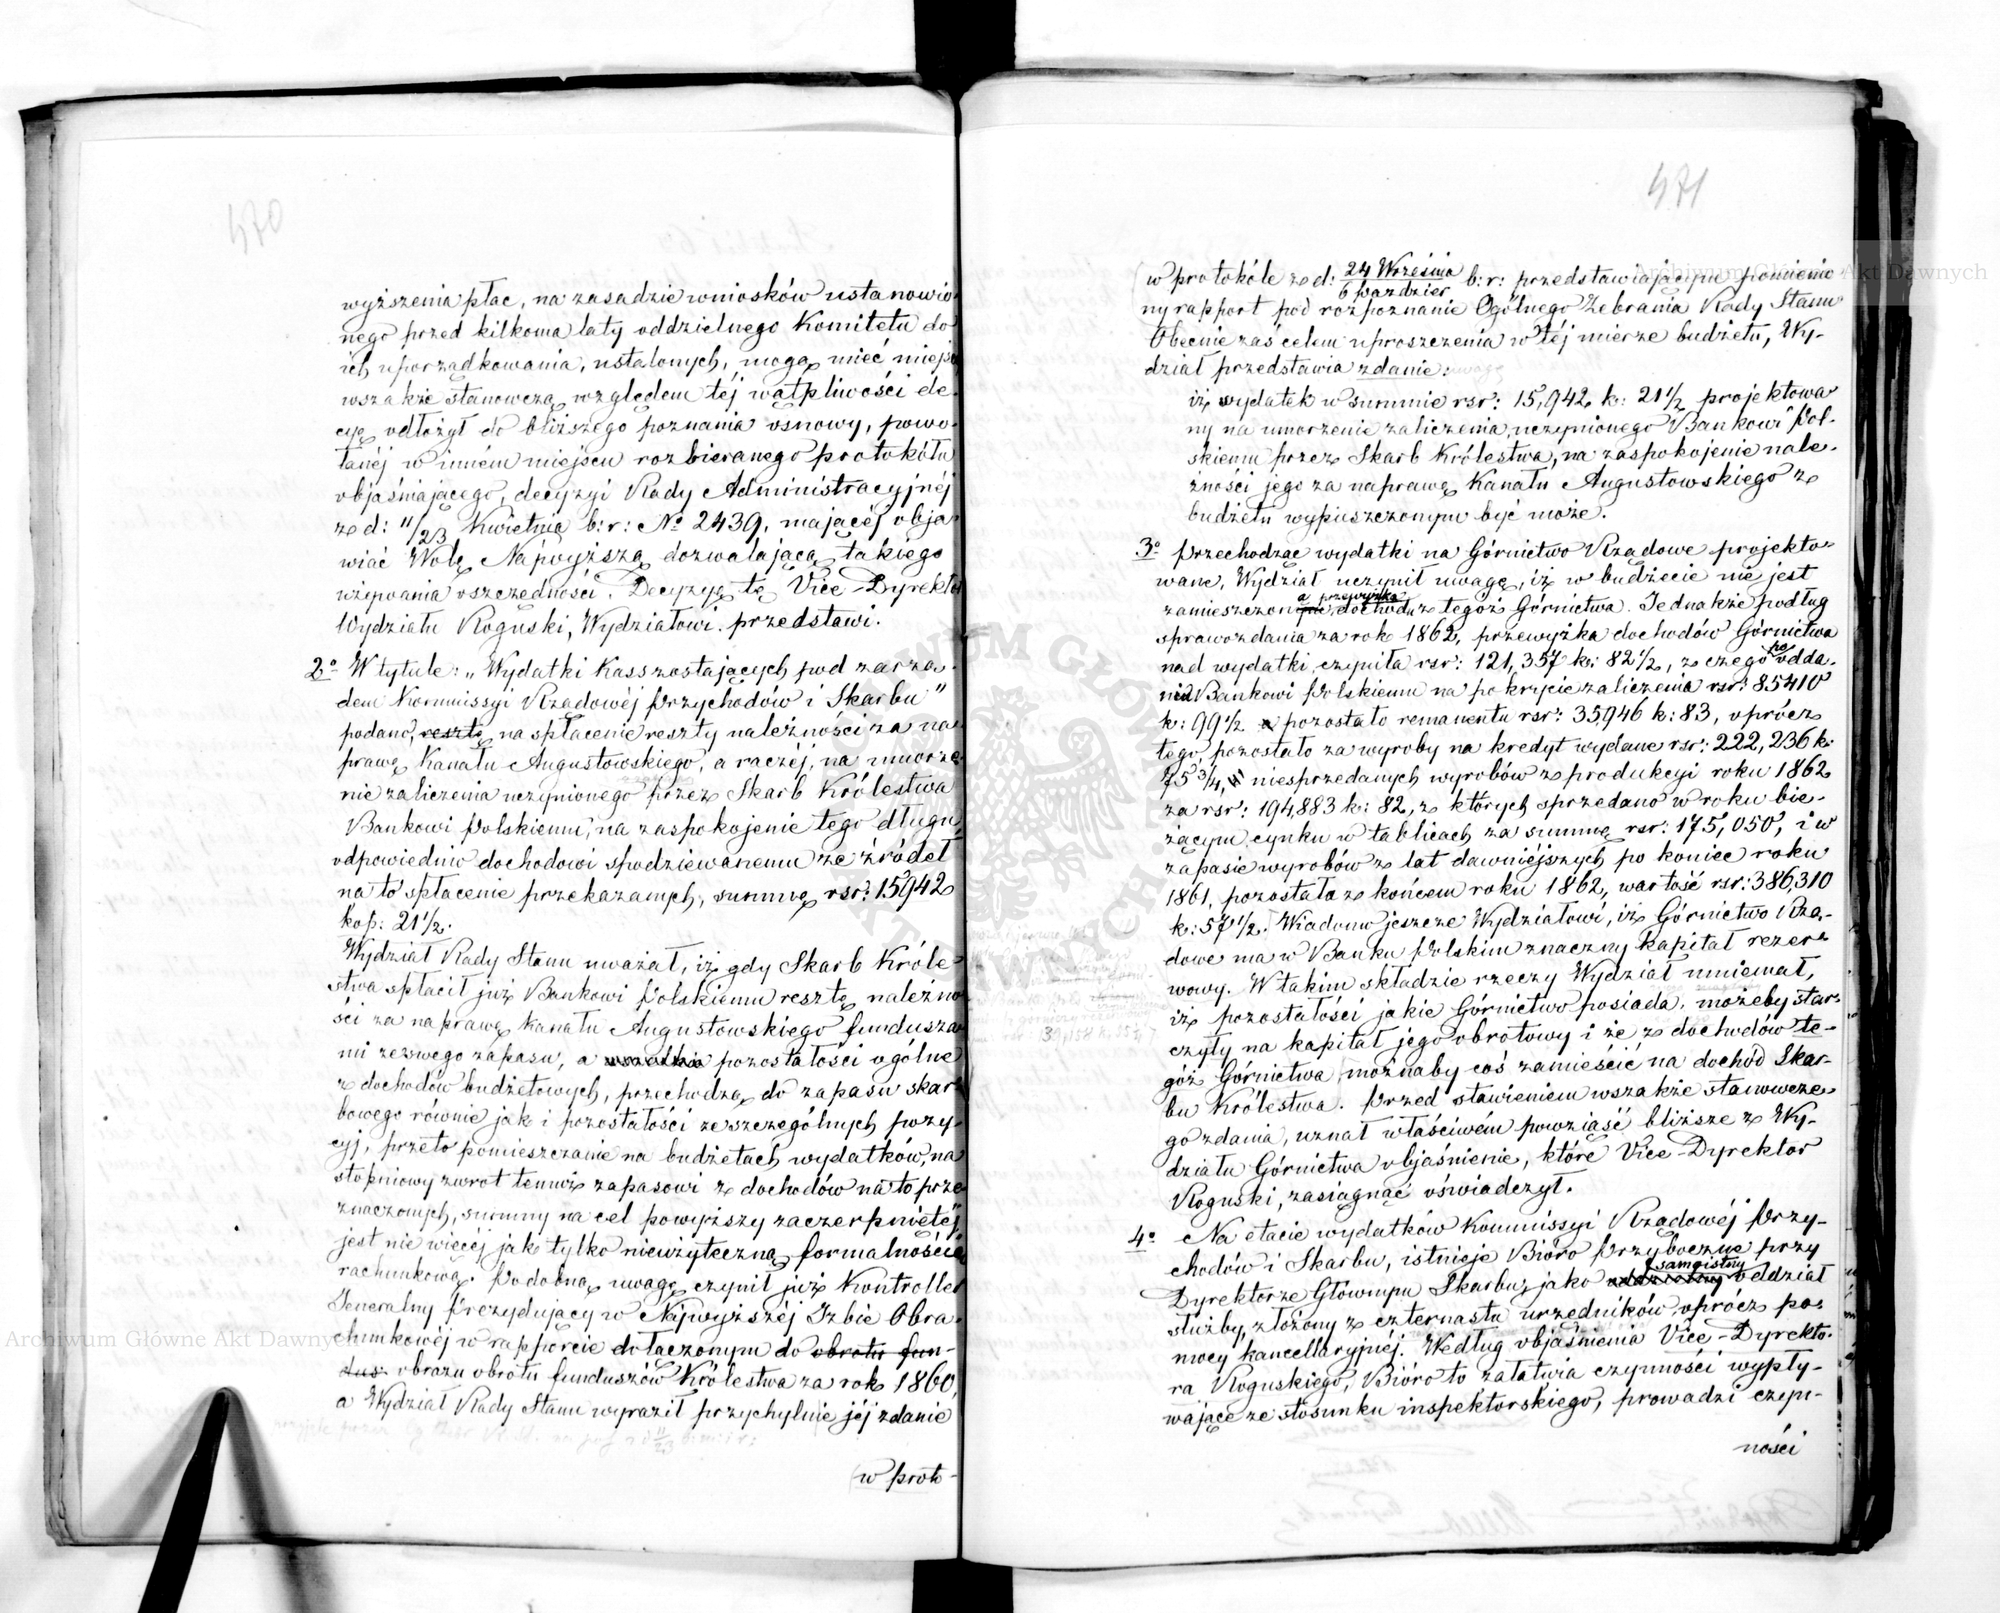 470
wyższenia płac, na zasadzie wniosków ustanowio-
nego przed kilkoma laty oddzielnego Komitetu do
ich uporządkowania, ustalonych, mogą mieć miejs
wszakże stanowczą względem téj wątpliwości de-
cyę odłożył do bliższego poznania osnowy, powo-
łanéj w inném miejscu rozbieranego protokółu
objaśniającego, decyzyi Rady Administracyjnéj
z d: 11/23 Kwietnia b: r: No 2439, mającéj obja-
wiać Wolę Najwyższą dozwalającą takiego
używania oszczędności. Decyzyę tę Vice-Dyrekto
Wydziału Roguski, Wydziałowi przedstawi.
2o W tytule: „Wydatki Kass zostających pod zarzą-
dem Kommissyi Rządowéj Przychodów i Skarbu"
podano, resztę na spłacenie reszty należności za na-
prawę Kanału Augustowskiego, a raczéj, na umorze-
nie zaliczenia uczynionego przez Skarb Królestwa
Bankowi Polskiemu, na zaspokojenie tego długu,
odpowiednio dochodowi spodziewanemu ze źródeł
na to spłacenie przekazanych, summę rsr: 15942
kop: 21½.
Wydział Rady Stanu uważał, iż gdy Skarb Króle-
stwa spłacił już Bankowi Polskiemu resztę należno-
ści za naprawę Kanału Augustowskiego fundusza-
mi ze swego zapasu, a wszelkie pozostałości ogólne
z dochodów budżetowych, przechodzą do zapasu skar-
bowego równie jak i pozostałości ze szczególnych pozy-
cyj, przeto pomieszczanie na budżetach wydatków, na
stopniowy zwrot temuż zapasowi z dochodów na to prze-
znaczonych, summy na cel powyższy zaczerpniętéj
jest nie więcéj jak tylko nieużyteczną formalnością
rachunkową. Podobną uwagę czynił już Kontroller
Jeneralny Prezydujący w Najwyższéj Izbie Obra-
chunkowéj w rapporcie dołączonym do obrotu fun-
dus obrazu obrotu funduszów Królestwa za rok 1860,
a Wydział Rady Stanu wyraził przychylnie jéj zdanie
(w proto-
471
w protokóle z d: 24 Września / 6 Paździer b: r: przedstawiającym pomienio
ny rapport pod rozpoznanie Ogólnego Zebrania Rady Stanu
Obecnie zaś celem uproszczenia w téj mierze budżetu, Wy-
dział przedstawia zdanie:
iż wydatek w summie rsr: 15,942 k: 21½ projektowa
ny na umorzenie zaliczenia, uczynionego Bankowi Pol-
skiemu przez Skarb Królestwa, na zaspokojenie nale-
żności jego za naprawę Kanału Augustowskiego z
budżetu wypuszczonym być może.
3o Przechodząc wydatki na Górnictwo Rządowe projekto-
wane, Wydział uczynił uwagę, iż w budżecie nie jest
a przewyżka
zamieszczon dochodu z tegoż Górnictwa. Jednakże podług
sprawozdania za rok 1862, przewyżka dochodów Górnictwa
nad wydatki czyniła rsr: 121,357 k: 82½, z czego po odda-
niu Bankowi Polskiemu na pokrycie zaliczenia rsr: 85410
k: 99½ pozostało remanentu rsr: 35,946 k: 83, oprócz
tego pozostało za wyroby na kredyt wydane rsr: 222,236 k:
75¾, niesprzedanych wyrobów z produkcyi roku 1862
za rsr: 194,883 k: 82, z których sprzedano w roku bie-
żącym cynku w tablicach za summę rsr: 175,050, i w
zapasie wyrobów z lat dawniéjszych po koniec roku
1861, pozostała z końcem roku 1862, wartość rsr: 386,310
k: 57½. Wiadomo jeszcze Wydziałowi, iż Górnictwo Rzą-
dowe ma w Banku Polskim znaczny kapitał rezer-
wowy. W takim składzie rzeczy Wydział mniemał,
iż pozostałości jakie Górnictwo posiada, możeby star-
czyły na kapitał jego obrotowy i że z dochodów te-
góż Górnictwa możnaby coś zamieścić na dochód Skar-
bu Królestwa. Przed stawieniem wszakże stanowcze-
go zdania, uznał właściwém powziąść bliższe z Wy-
działu Górnictwa objaśnienie, które Vice-Dyrektor
Roguski, zasiągnąć oświadczył.
4o Na etacie wydatków Kommissyi Rządowéj Przy-
chodów i Skarbu, istnieje Bióro Przyboczne przy
samoistny
Dyrektorze Głównym Skarbu, jako oddzielny oddział
służby, złożony z czternastu urzędników, oprócz po-
mocy kancellaryjnéj. Według objaśnienia Vice-Dyrekto-
ra Roguskiego, Bióro to załatwia czynności wypły-
wające ze stosunku inspektorskiego, prowadzi czyn-
ności
Archiwum Główne Akt Dawnych
Archiwum Główne Akt Dawnych
ARCHIWUM GŁÓWNE AKT DAWNYCH